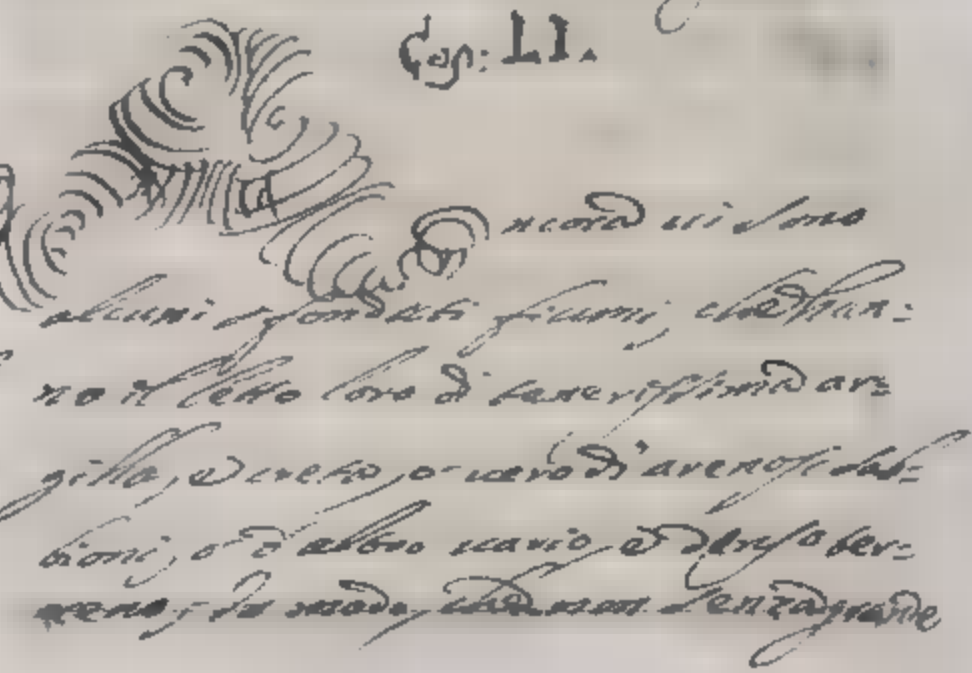 Cap: LI.
Ancora vi sono
alcuni profondati fiumi, che han:
no il letto loro di tenerissima ar:
gilla, e creta, o- vero di arenosi sab:
bioni, o- d'altro vario e diverso ter:
reno, in modo, che non senza grande